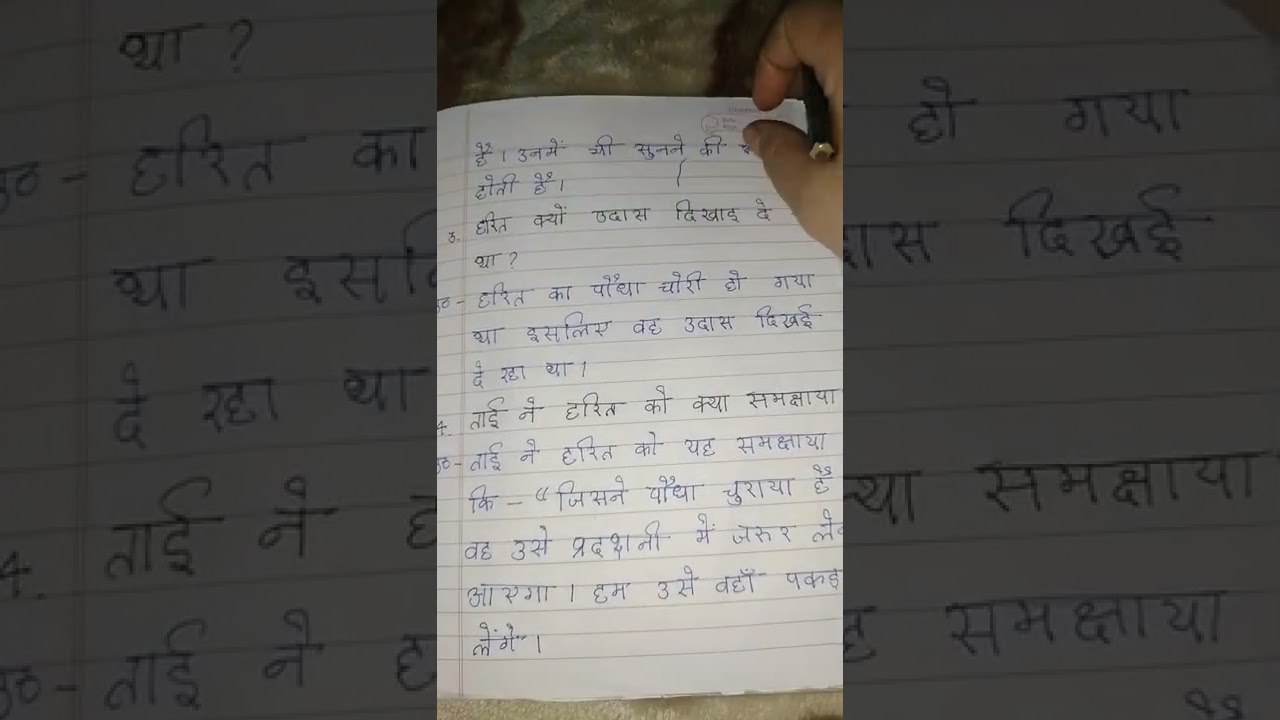 है। उनमें भी सुनने की
होती है।
3. हरित क्यों उदास दिखाइ दे
था?
उ०- हरित का पौधा चोरी हो गया
था इसलिए वह उदास दिखई
दे रहा था।
4. ताई ने हरित को क्या समझाया
उ०- ताई ने हरित को यह समझाया
कि - “जिसने पौधा चुराया है
वह उसे प्रदर्शनी में जरुर
आएगा। हम उसे वहाँ पकड़
लेंगे।